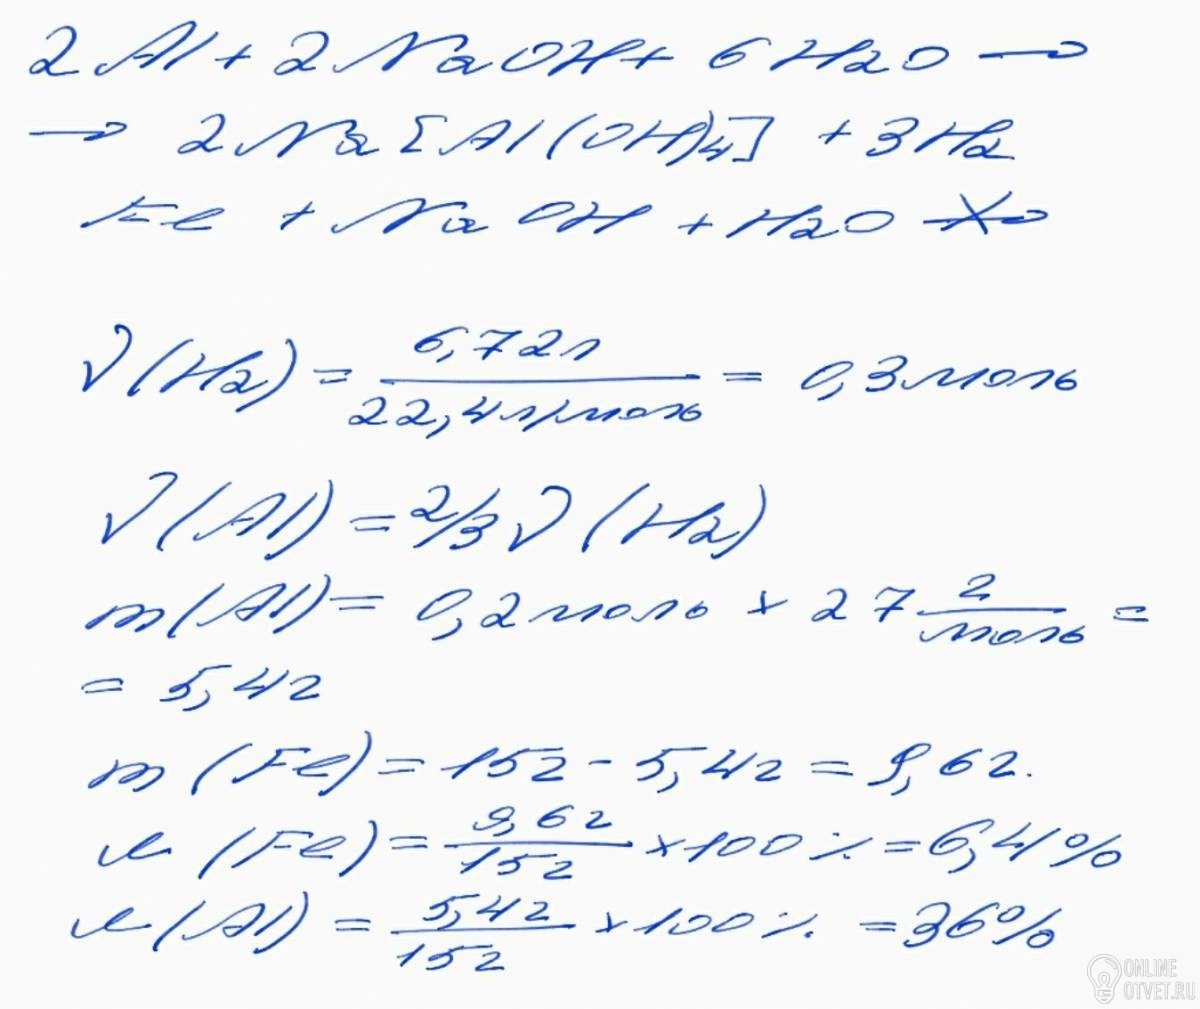 2Al + 2NaOH + 6H2O →
→ 2Na[Al(OH)4] + 3H2
Fe + NaOH + H2O ↛
ν(H2) = 6,72л / 22,4л/моль = 0,3моль
ν(Al) = 2/3 ν(H2)
m(Al) = 0,2моль × 27 г/моль =
= 5,4г
m(Fe) = 15г - 5,4г = 9,6г.
ω(Fe) = 9,6г / 15г × 100% = 6,4%
ω(Al) = 5,4г / 15г × 100% = 36%
ONLINE
OTVET.RU